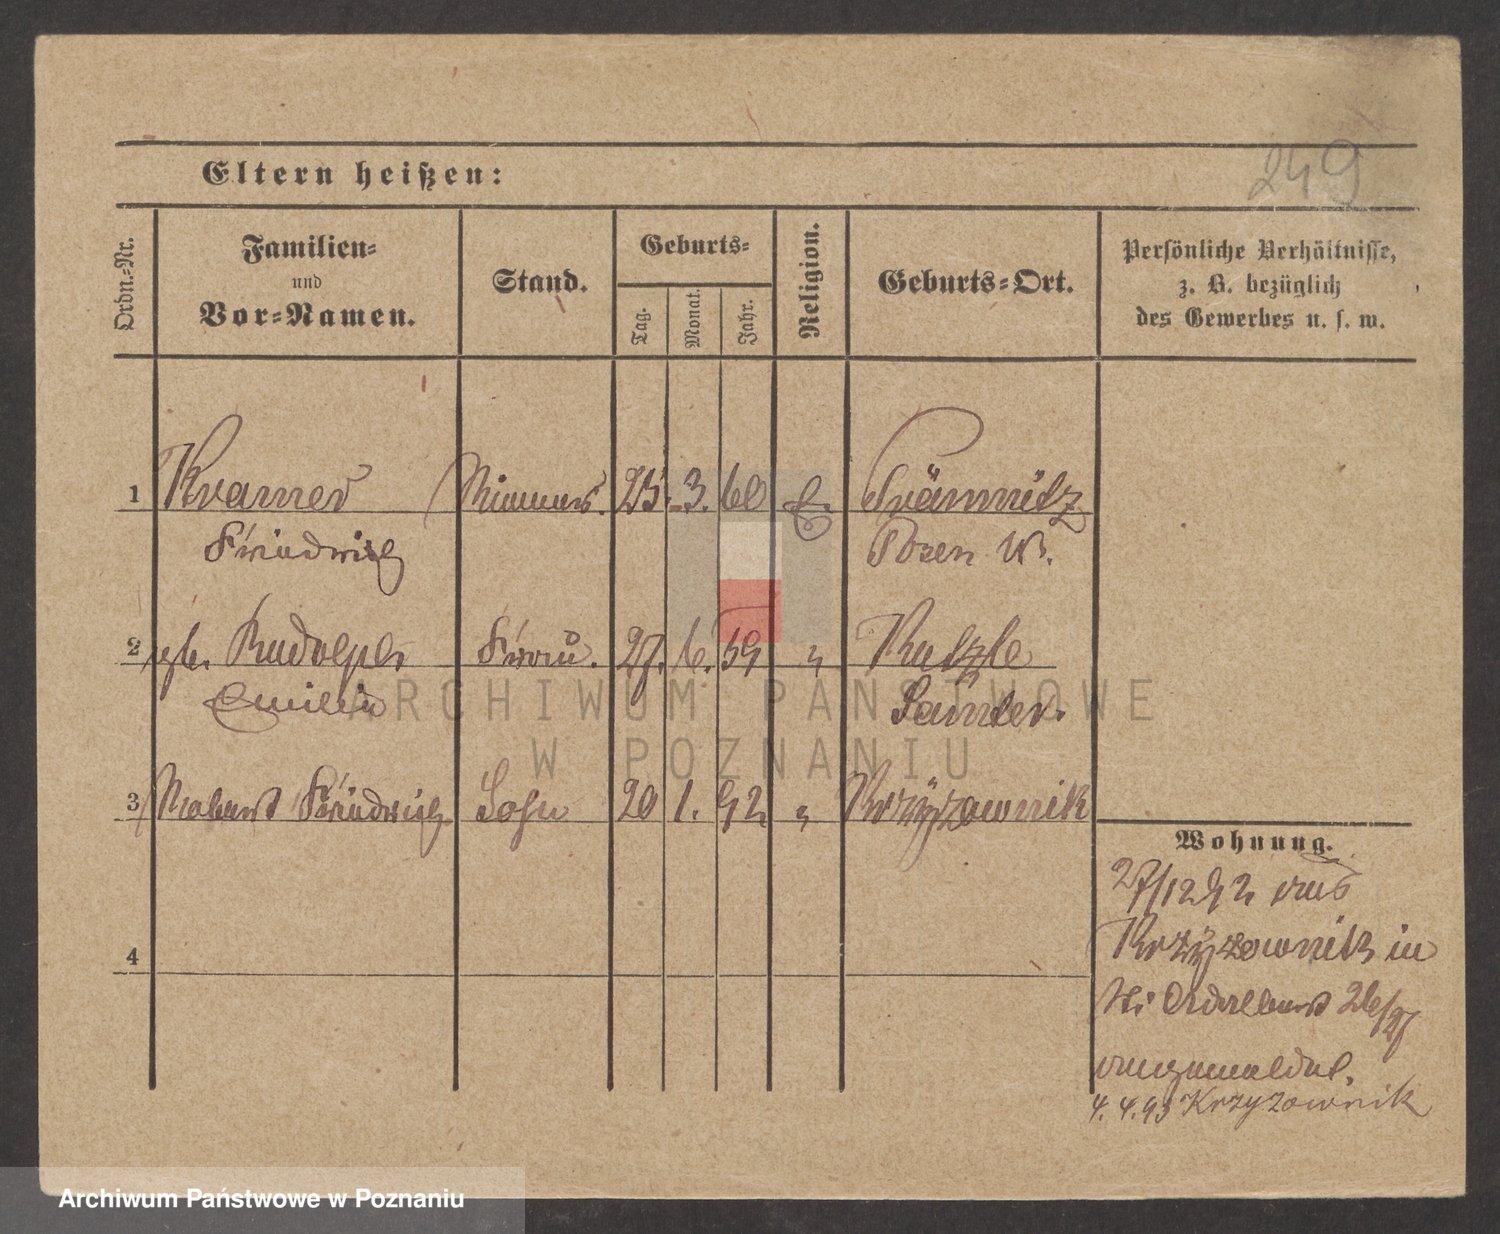 249
Eltern heißen:
Ordn.-Nr.
Familien-
und
Vor-Namen.
Stand.
Geburts-
Tag.
Monat.
Jahr.
Religion.
Geburts-Ort.
Persönliche Verhältnisse,
z. B. bezüglich
des Gewerbes u. s. w.
1 Kramer 25. 3. 60 E.
Friedrich Posen W.
2 gb. Rudolph Frau. 27. 6. 59 "
Emilie Samter.
3 Robert Friedrich Sohn 20 1. 92 " Krzyżownik
4
Wohnung.
27/12 92 aus
Krzyżownik in
St. Adalbert 26/27
angemeldet.
4. 4. 93 Krzyzownik
ARCHIWUM PAŃSTWOWE
W POZNANIU
Archiwum Państwowe w Poznaniu